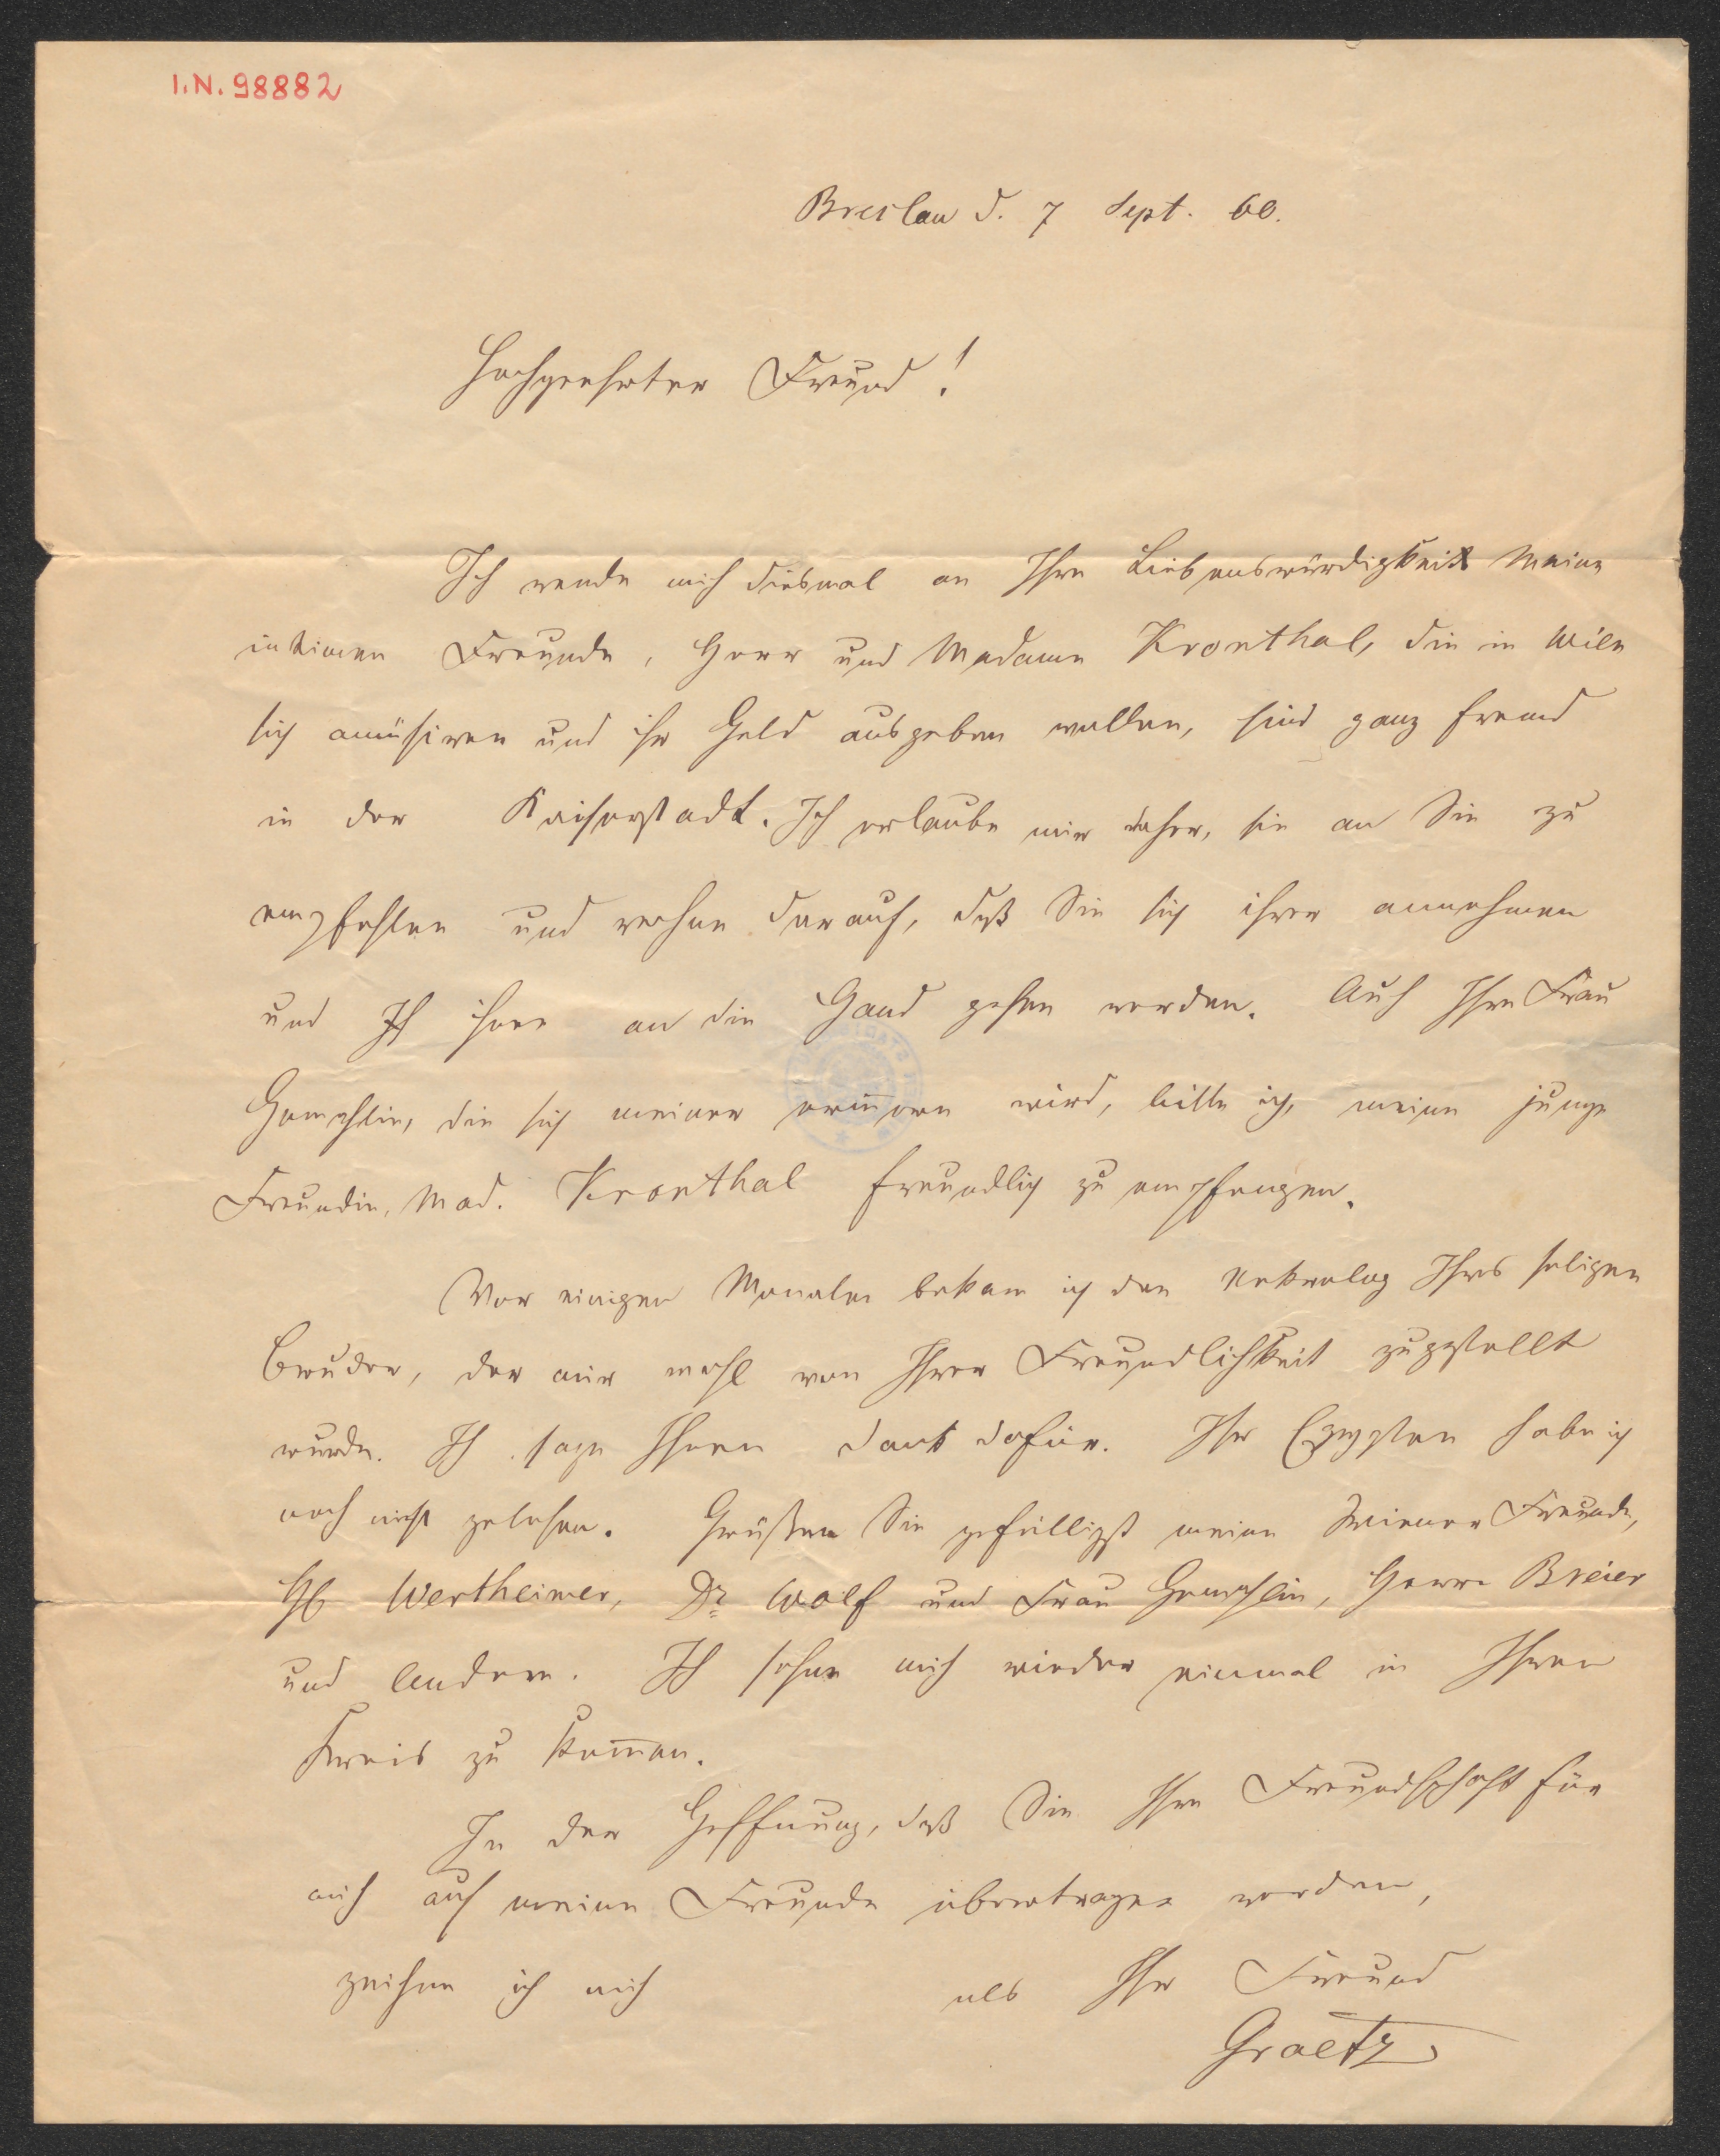 I.N. 98882
Breslau d. 7 Sept. 60.
Hochgeehrter Freund!
Ich wende mich diesmal an Ihre Liebenswürdigkeit Meine
intimen Freunde, Herr und Madame Kronthal, die in Wien
sich amüsiren und ihr Geld ausgeben wollen, sind ganz fremd
in der Kaiserstadt. Ich erlaube mir daher, sie an Sie zu
empfehlen und rechne darauf, daß Sie sich ihrer annehmen
und ihnen an die Hand gehen werden. Auch Ihre Frau
Gemahlin, die sich meiner erin̄ern wird, bitte ich, meine junge
Freundin, Mad. Kronthal freundlich zu empfangen.
Vor einigen Monaten bekam ich den Nekrolog Ihres seligen
Bruder, der mir wohl von Ihrer Freundlichkeit zugestellt
wurde. Ich sage Ihnen Dank dafür. Ihr Egypten habe ich
noch nicht gelesen. Grüßen Sie gefälligst meine Wiener Freunde,
HH Wertheimer, Dr Wolf und Frau Gemahlin, Herrn Breier
und Andern. Ich sehne mich wieder einmal in Ihren
Kreis zu kom̄en.
In der Hoffnung, daß Sie Ihre Freundschaft für
mich auf meine Freunde übertragen werden,
zeichne ich mich als Ihr Freund
Graetz